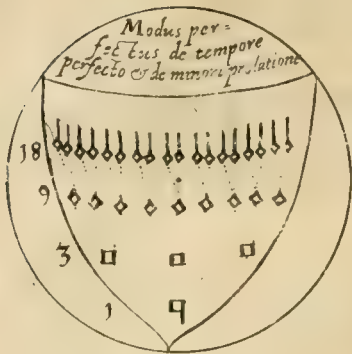 Modus per=
fectus de tempore
perfecto & de minori prolatione
18
9
3
1